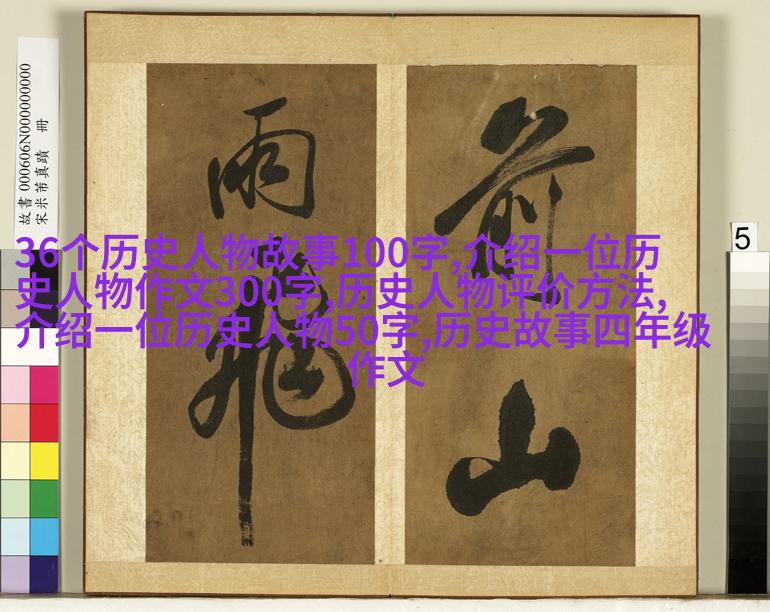 故書 000606N000000000
宋米芾真蹟 冊
前山
雨飛
5
36个历史人物故事100字,介绍一位历
史人物作文300字,历史人物评价方法,
介绍一位历史人物50字,历史故事四年级
作文